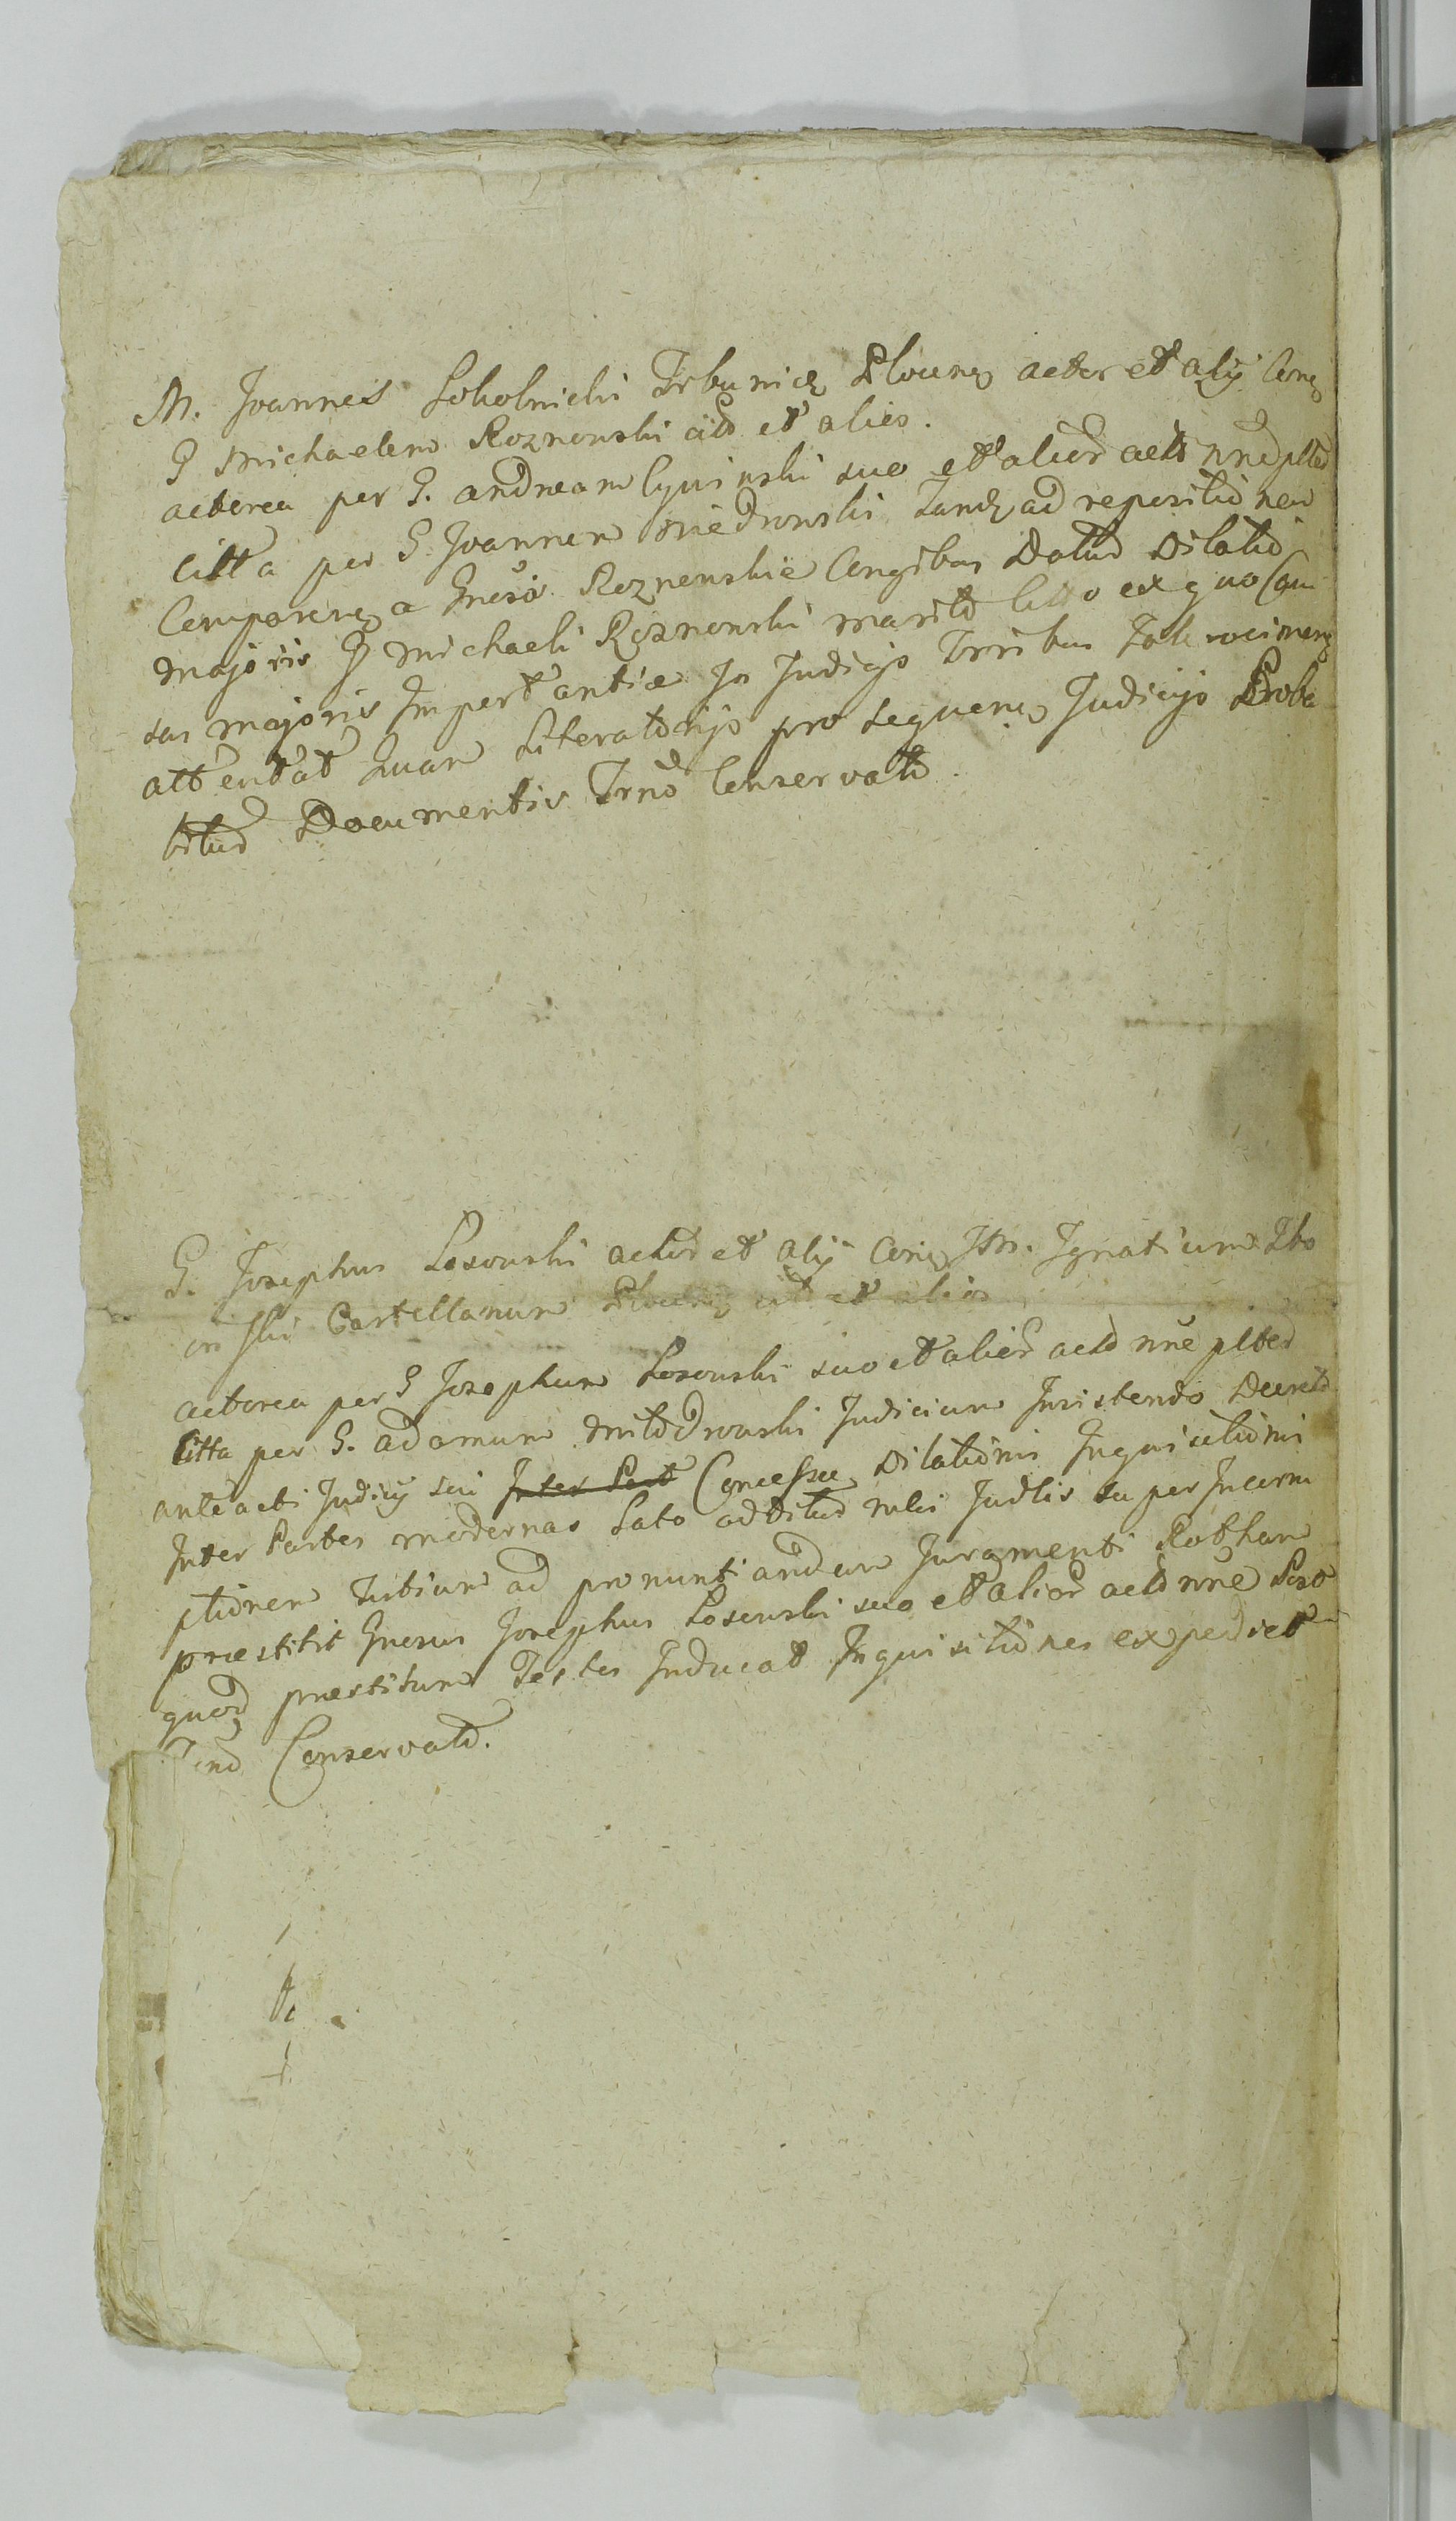 M. Joannes Sokolnicki Tribunicz Plocenz actor et alij Conz
G Michaelem Roznowski citd et alios.
actorea per G. andream Cywinski suo et aliord actd nne plted
Citta per G. Joannem Miedronski Tandz ad repositid nem
Comparenz a Gnesa Roznowskie Congibus Datud Dilatid
majoris G Michaeli Roznowski maritd Citto ex quo Cau
sas majoris Importantiæ In Judicijo Trribus
attentat Quam Literatorijo pro sequenz Judicijo Proba
bitud Documentis Trnd Conservatd.
G. Josephus Losowski actor et alij Conz JM. Ignatium Zbo
in ski Castellanum Plocenz citd et alios
actorea per G Josephum Losowski suo et aliord actd nne plted
Citta per G. adamum Miłodrowski Judicium Insistendo Decretd
ante acti Judicij sui Inter Part Concessæ Dilatidnis Inquisitidnis
Inter Partes modernas Lato additud rulis Judlis super Incarm
ptidnem Testium ad pronuntiandum Juramenti Rotham
præstitit Gnesus Josephus Losowski suo et aliord actd nne Post
quodz præstitum Testes Inducat Inquisitidnes expediet
Trnd Conservatd.